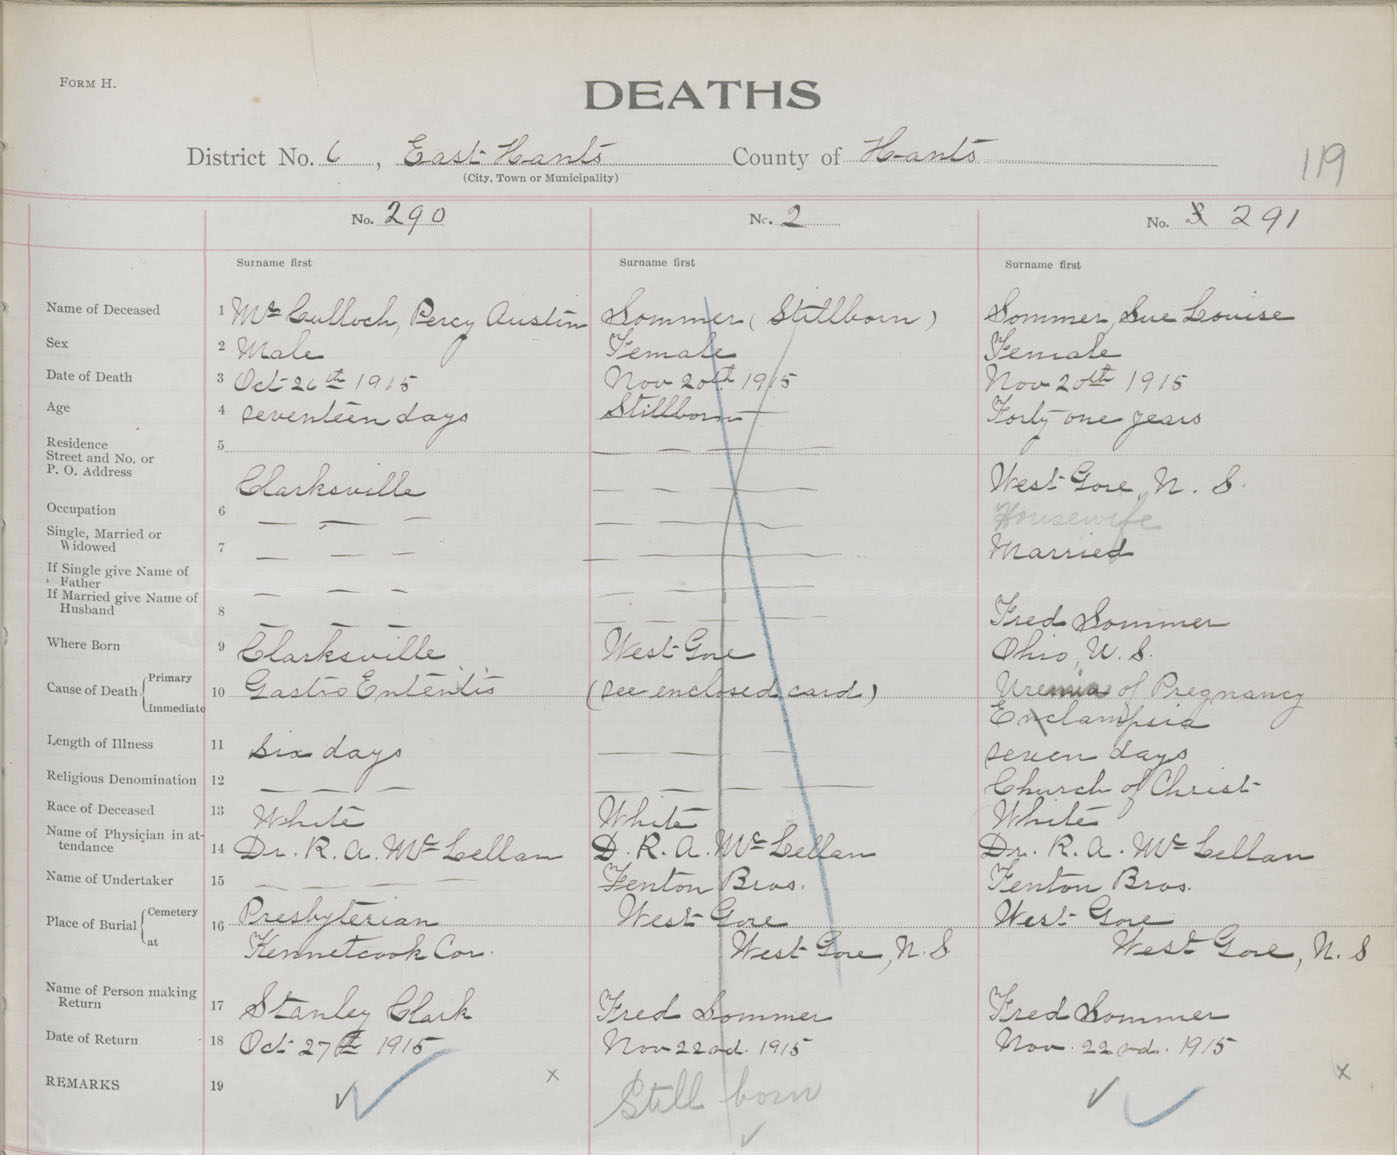 FORM H.
DEATHS
119
District No. 6, East Hants County of Hants
(City, Town or Municipality)
No. 290 No. 2 No. 3 291
Surname first Surname first Surname first
Name of Deceased 1 McCulloch, Percy Austin Sommer (Stillborn) Sommer, Sue Louise
Sex 2 Male Female Female
Date of Death 3 Oct 26th 1915 Nov 20th 1915 Nov 20th 1915
Age 4 seventeen days Stillborn Forty one years
Residence
Street and No. or
P. O. Address 5 Clarksville West Gore, N. S.
Occupation 6 Housewife
Single, Married or
Widowed 7 Married
If Single give Name of
Father
If Married give Name of
Husband 8 Fred Sommer
Where Born 9 Clarksville West Gore Ohio, U. S.
Cause of Death Primary 10 Gastro Enteritis (see enclosed card) Uremia of Pregnancy
Immediate Enclampsia
Length of Illness 11 six days seven days
Religious Denomination 12 Church of Christ
Race of Deceased 13 White White White
Name of Physician in at-
tendance 14 Dr. R. A. McLellan D. R. A. McLellan Dr. R. A. McLellan
Name of Undertaker 15 Fenton Bros. Fenton Bros.
Place of Burial Cemetery 16 Presbyterian West Gore West Gore
at Kennetcook Cor. West Gore, N. S West Gore, N. S
Name of Person making
Return 17 Stanley Clark Fred Sommer Fred Sommer
Date of Return 18 Oct 27th 1915 Nov 22nd. 1915 Nov. 22nd. 1915
REMARKS 19 Still born